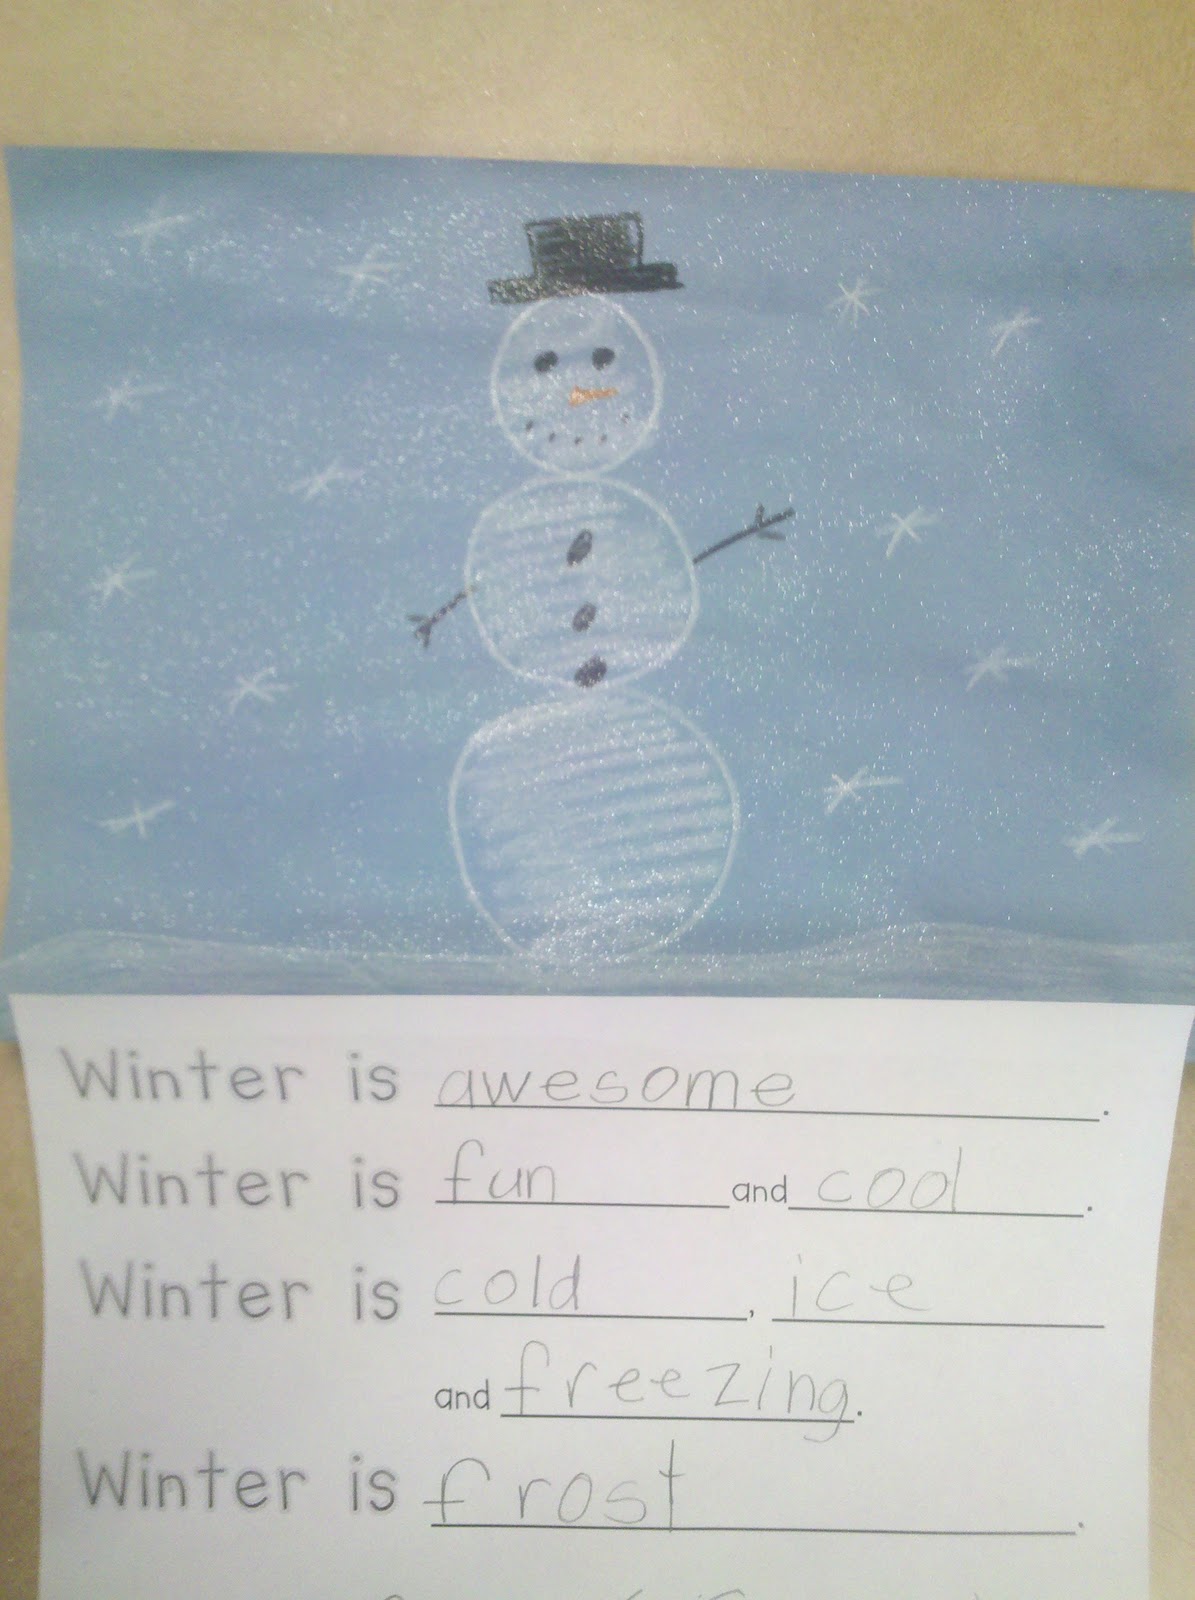 Winter is awesome.
Winter is fun and cool.
Winter is cold, ice
and freezing.
Winter is frost.